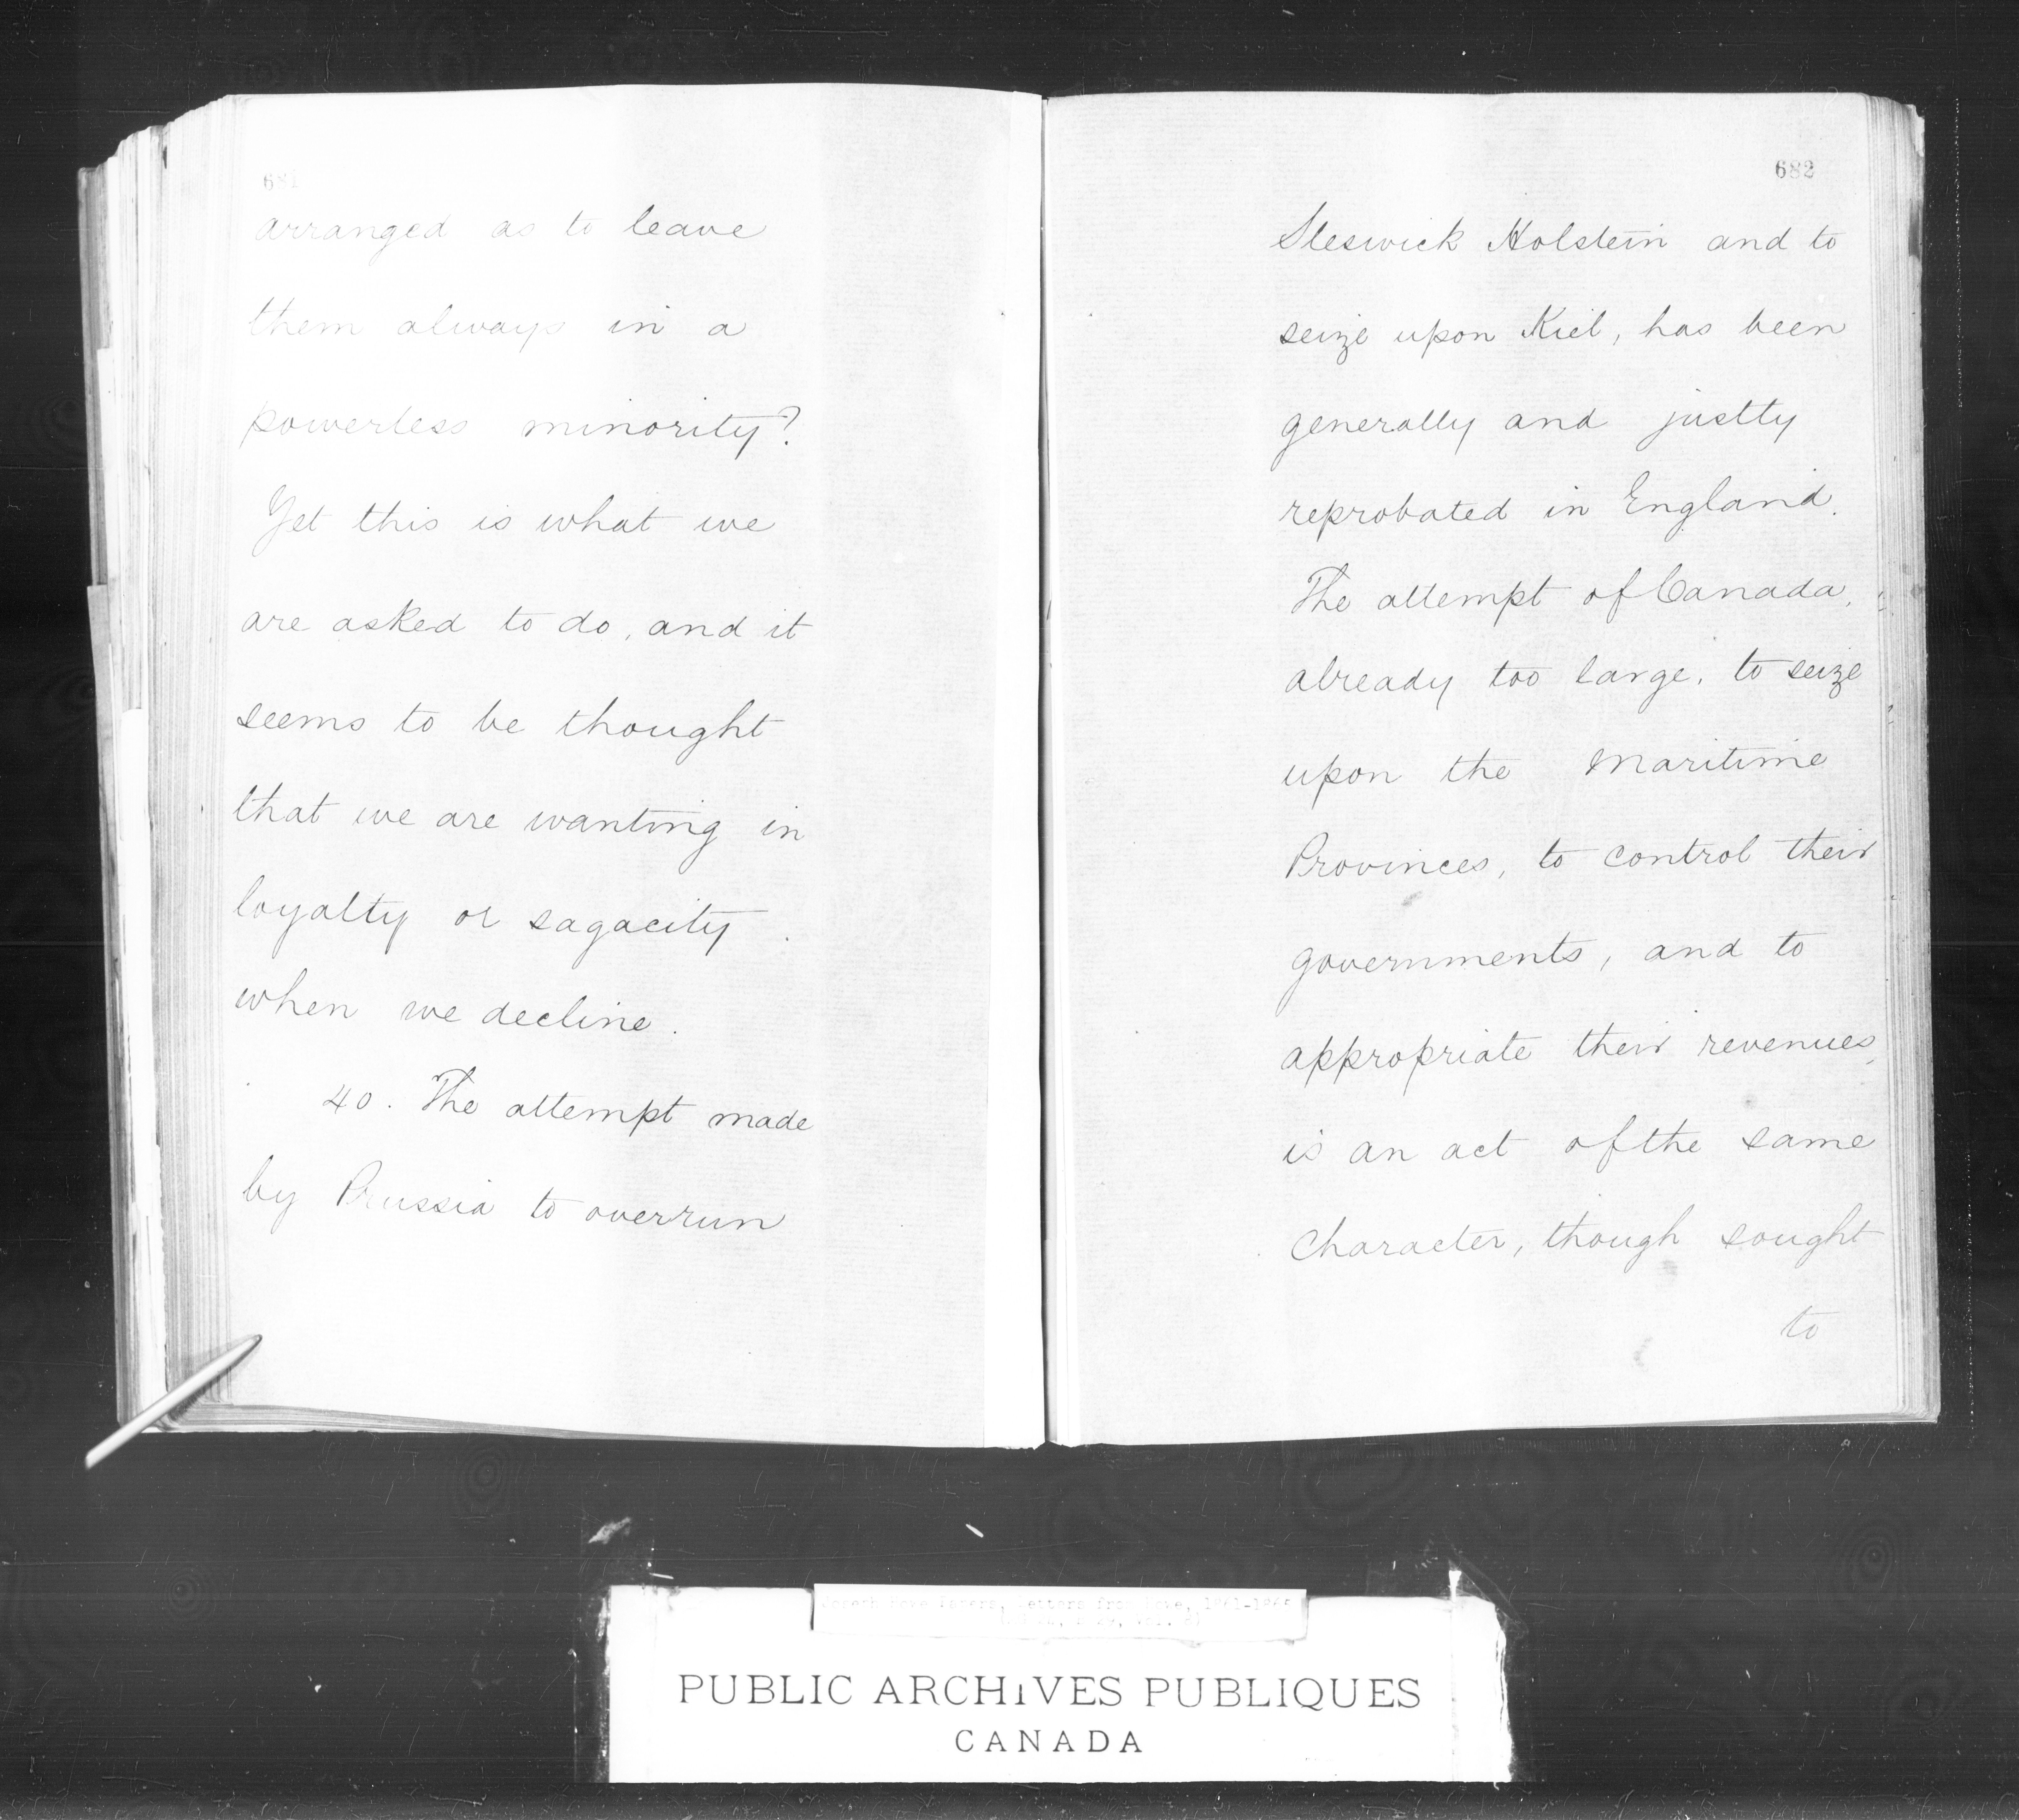 681
arranged as to leave
them always in a
powerless minority?
Yet this is what we
are asked to do, and it
seems to be thought
that we are wanting in
loyalty or sagacity
when we decline.
40. The attempt made
by Prussia to overrun
682
Sleswick Holstein and to
seize upon Kiel, has been
generally and justly
reprobated in England.
The attempt of Canada,
already too large, to seize
upon the Maritime
Provinces, to control their
governments, and to
appropriate their revenues,
is an act of the same
character, though sought
to
Joseph Howe Papers, Letters from Howe, 1861-1865
PUBLIC ARCHIVES PUBLIQUES
CANADA